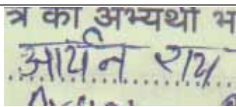 त्र का अभ्यर्थी भ
आर्यन राय